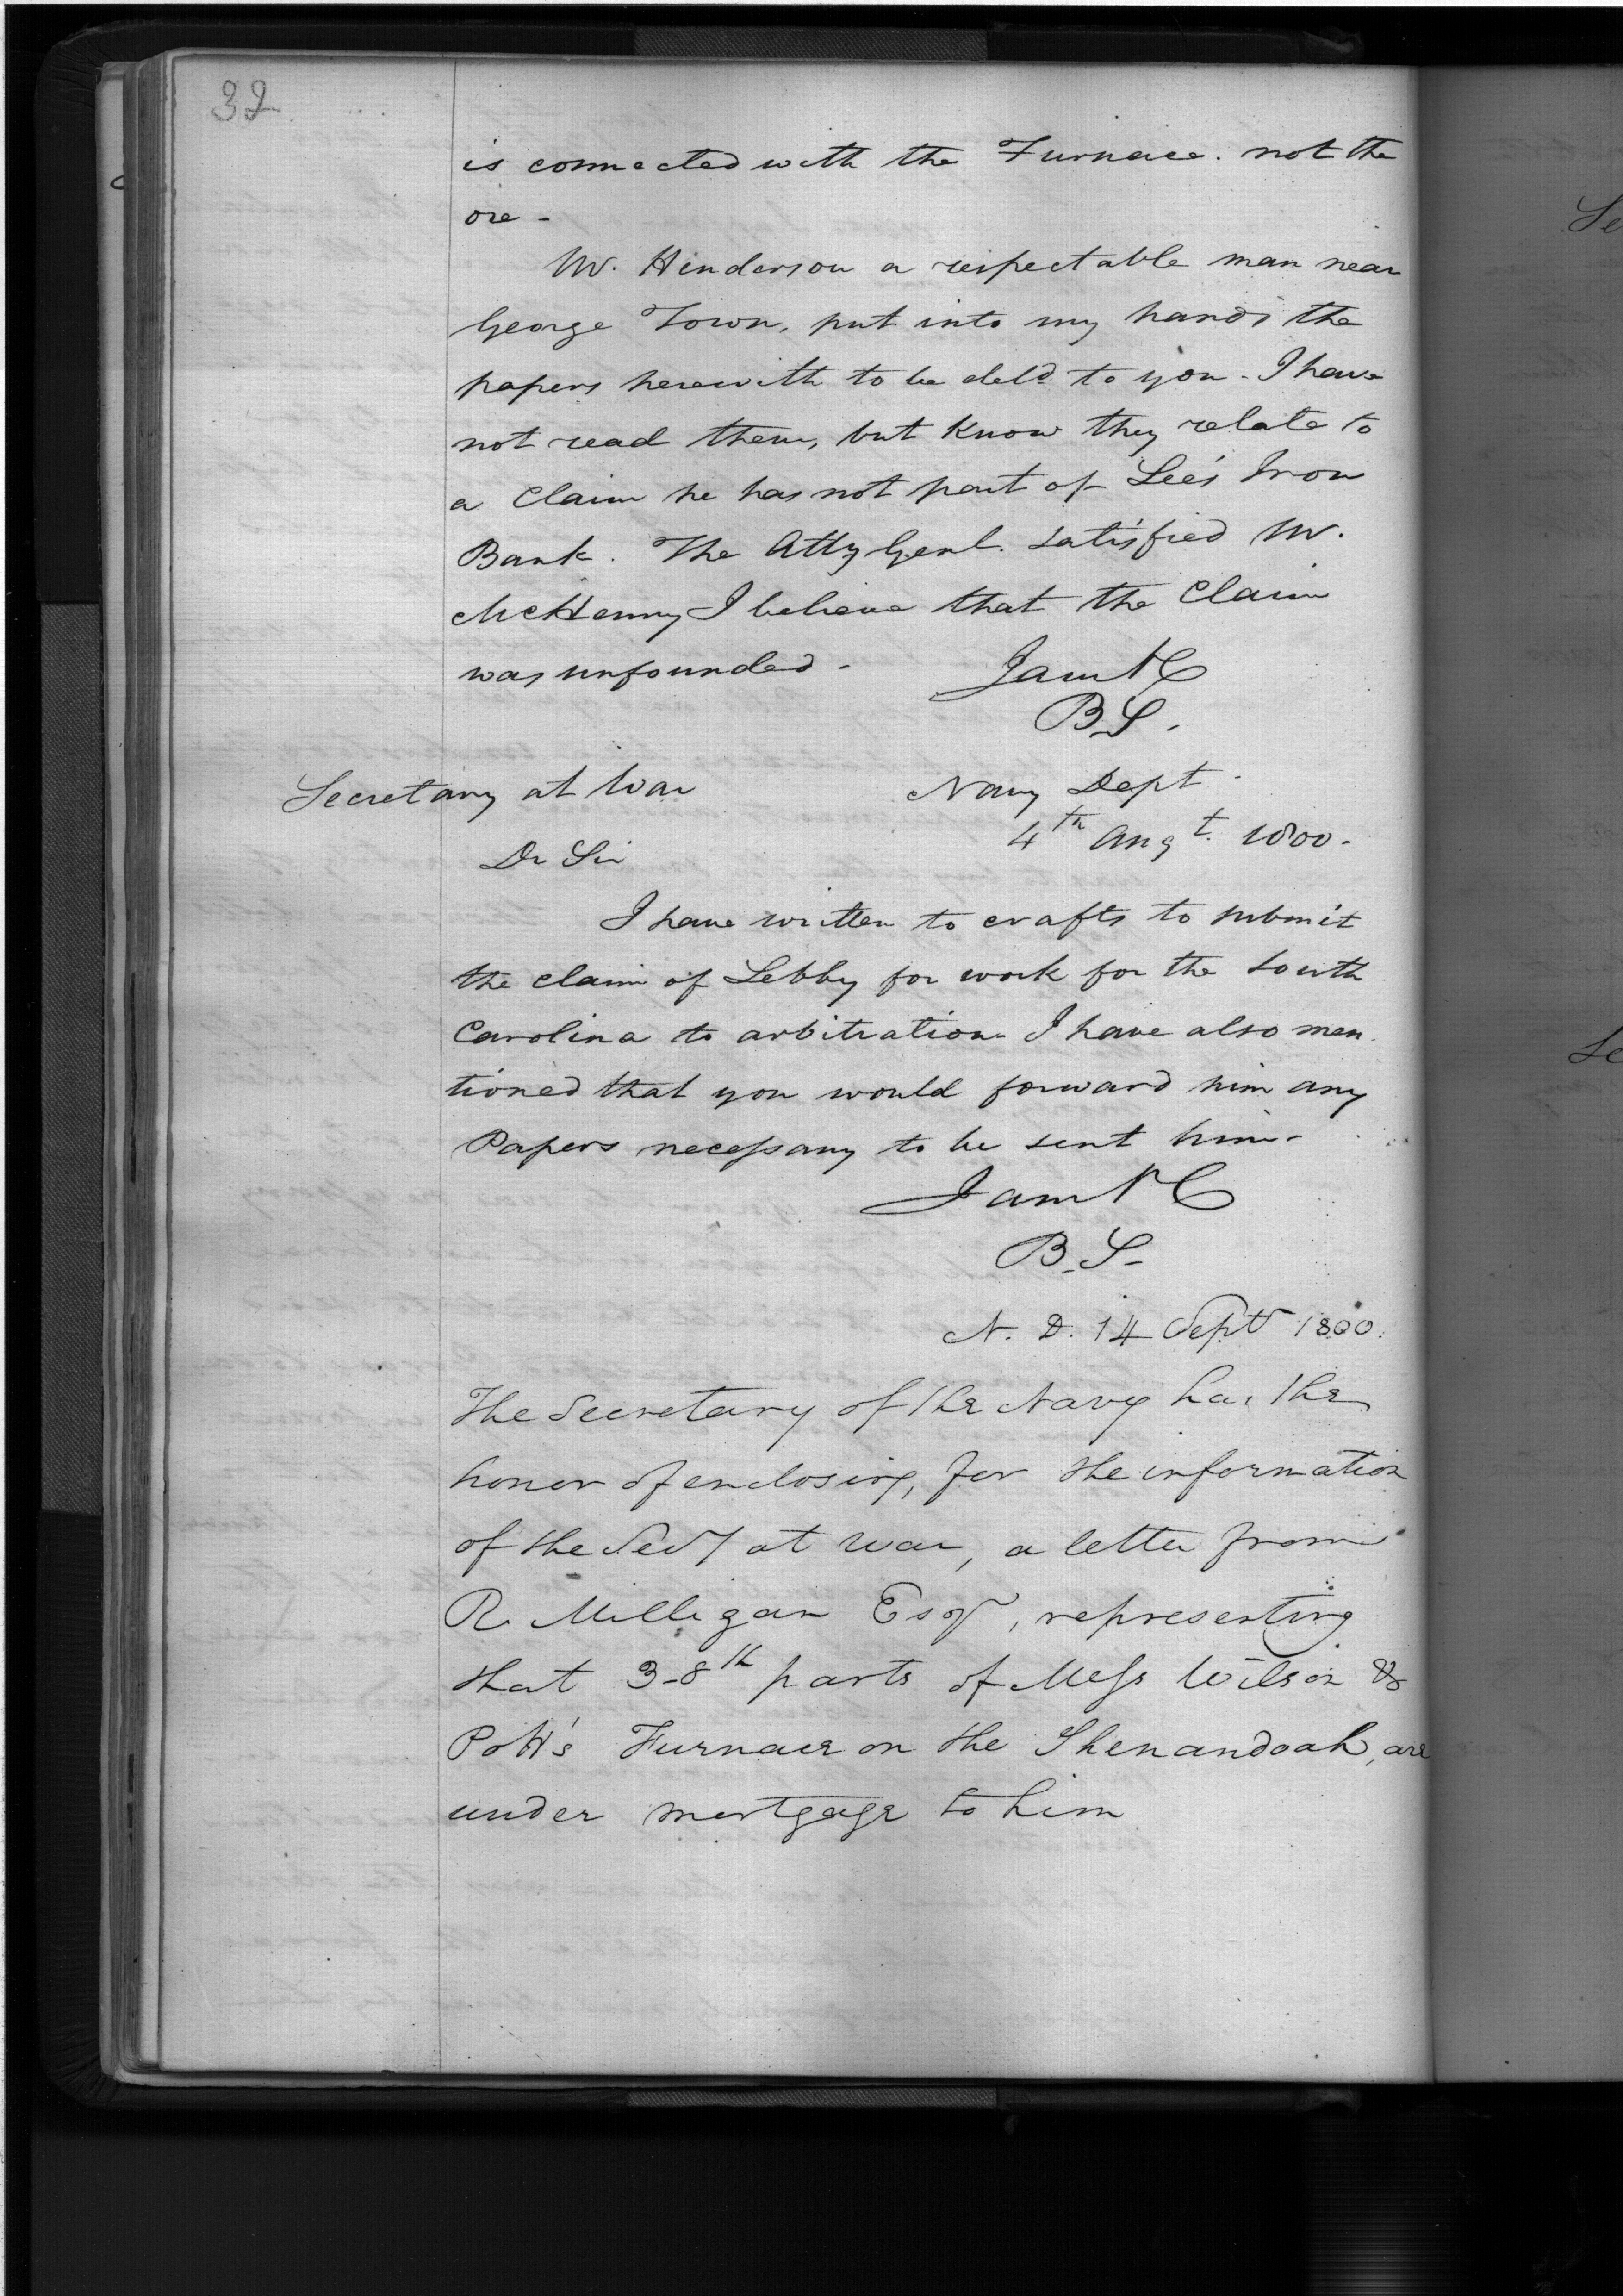 32
is connected with the Furnace. not the
ore -
Mr. Henderson a respectable man near
George Town, put into my hands the
papers herewith to be deld to you - I have
not read them, but Know they relate to
a Claim he has not part of Lee's Iron
Bank. The Atty Genl. satisfied Mr.
McHenry I believe that the Claim
was unfounded -
I am &C
B S.
Secretary at War
Navy Dept
4th Augt. 1800.
Dr Sir
I have written to crafts to submit
the claim of Lebby for work for the South
Carolina to arbitration I have also men
tioned that you would forward him any
Papers necessary to be sent him -
I am &C
B. S -
N. D. 14 Sept 1800.
The Secretary of the Navy has the
honor of enclosing, for the information
of the Secy at war, a letter from
R. Milligan Esqr, representing
that 3-8th parts of Mess Wilson &
Pott's Furnace on the Shenandoah, are
under mortgage to him
Se
Se